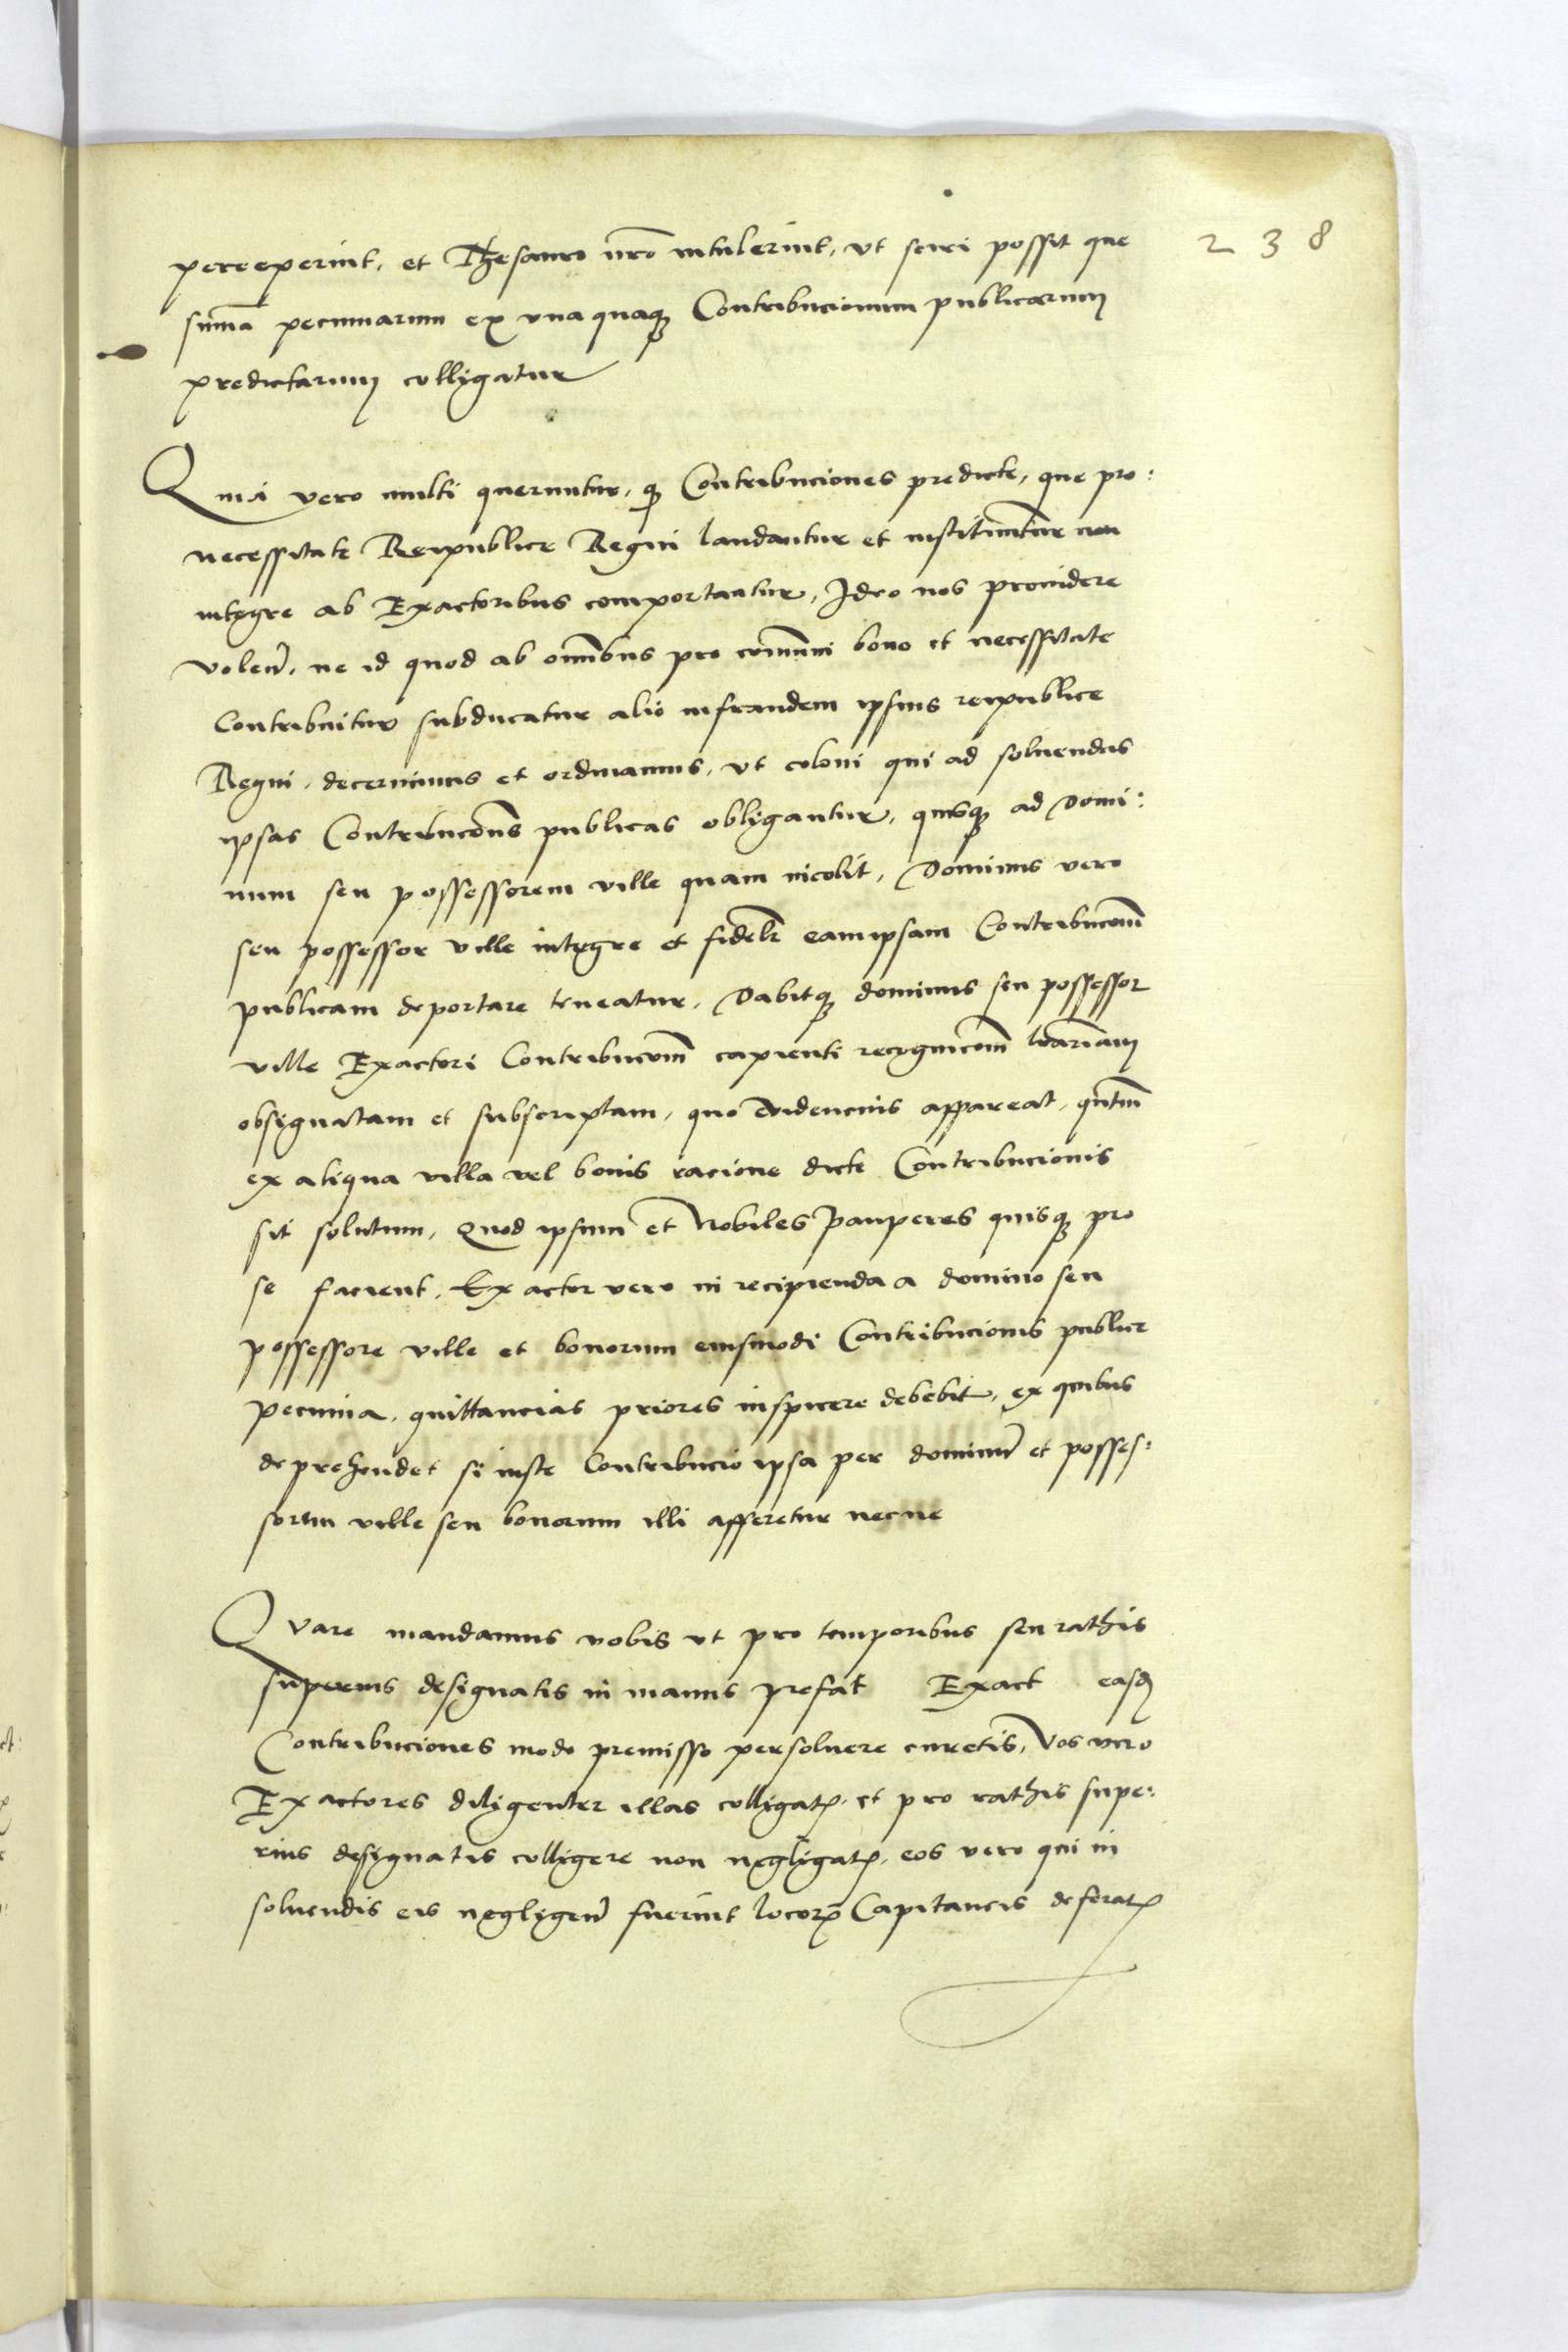 238
perceperint, et Thesauro nro intulerint, vt sciri possit que
summa pecuniarum ex vnaquaq Contribucionum publicarum
predictarum colligatur
Quia vero multi queruntur, q Contribuciones predicte, que pro:
necessitate Reipublice Regni laudantur et instituuntur non
integre ab Exactoribus comportantur, Ideo nos prouidere
volen, ne id quod ab omnibus pro communi bono et necessitate
Contribuitur subducatur alio infraudem ipsius reipublice
Regni, decernimus et ordinamus, vt coloni qui ad soluendas
ipsas Contribucones publicas obligantur, quisq ad Domi:
num seu possessorem ville quam incolit, Dominus vero
seu possessor ville integre et fideliter eamipsam Contribuconem
publicam deportare teneatur, Dabitq dominus seu possessor
ville Exactori Contribuconem capienti recogniconem lrariam
obsignatam et subscriptam, quo euidencius appareat, quantum
ex aliqua villa vel bonis racione dicte Contribucionis
sit solutum, Quod ipsum et Nobiles Pauperes quisq pro
se facient, Exactor vero in recipienda a domino seu
possessore ville et bonorum eiusmodi Contribucionis publice
pecunia, quittancias priores inspicere debebit, ex quibus
deprehendet si iuste Contribucio ipsa per dominum et posses:
sorem ville seu bonorum illi afferetur necne
Quare mandamus vobis vt pro temporibus seu rathis
superius designatis in manus prefat Exact easd
Contribuciones modo premisso persoluere curetis, Vos vero
Exactores diligenter illas colligatis, et pro rathis supe:
rius designatis colligere non negligatis, eos vero qui in
soluendis eis negligen fuerint locorum Capitaneis deferatis